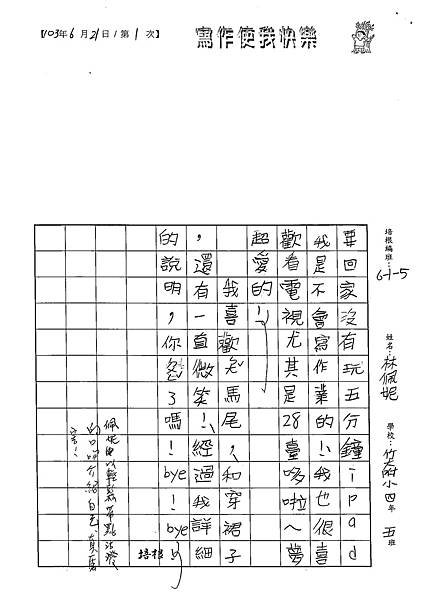 【103年6月21日/第1次】
寫作使我快樂
培根編班:6-1-5
姓名:林佩妮
學校:竹蒔小四年五班
要回家沒有玩五分鐘ipad
我是不會寫作業的!我也很喜
歡看電視尤其是28臺哆啦~夢
超愛的!
我喜歡馬尾,和穿裙子
,還有一直微笑!經過我詳細
的說明,你了嗎!bye!bye
佩妮輕鬆帶點活潑
的口吻介紹自己,真
培根